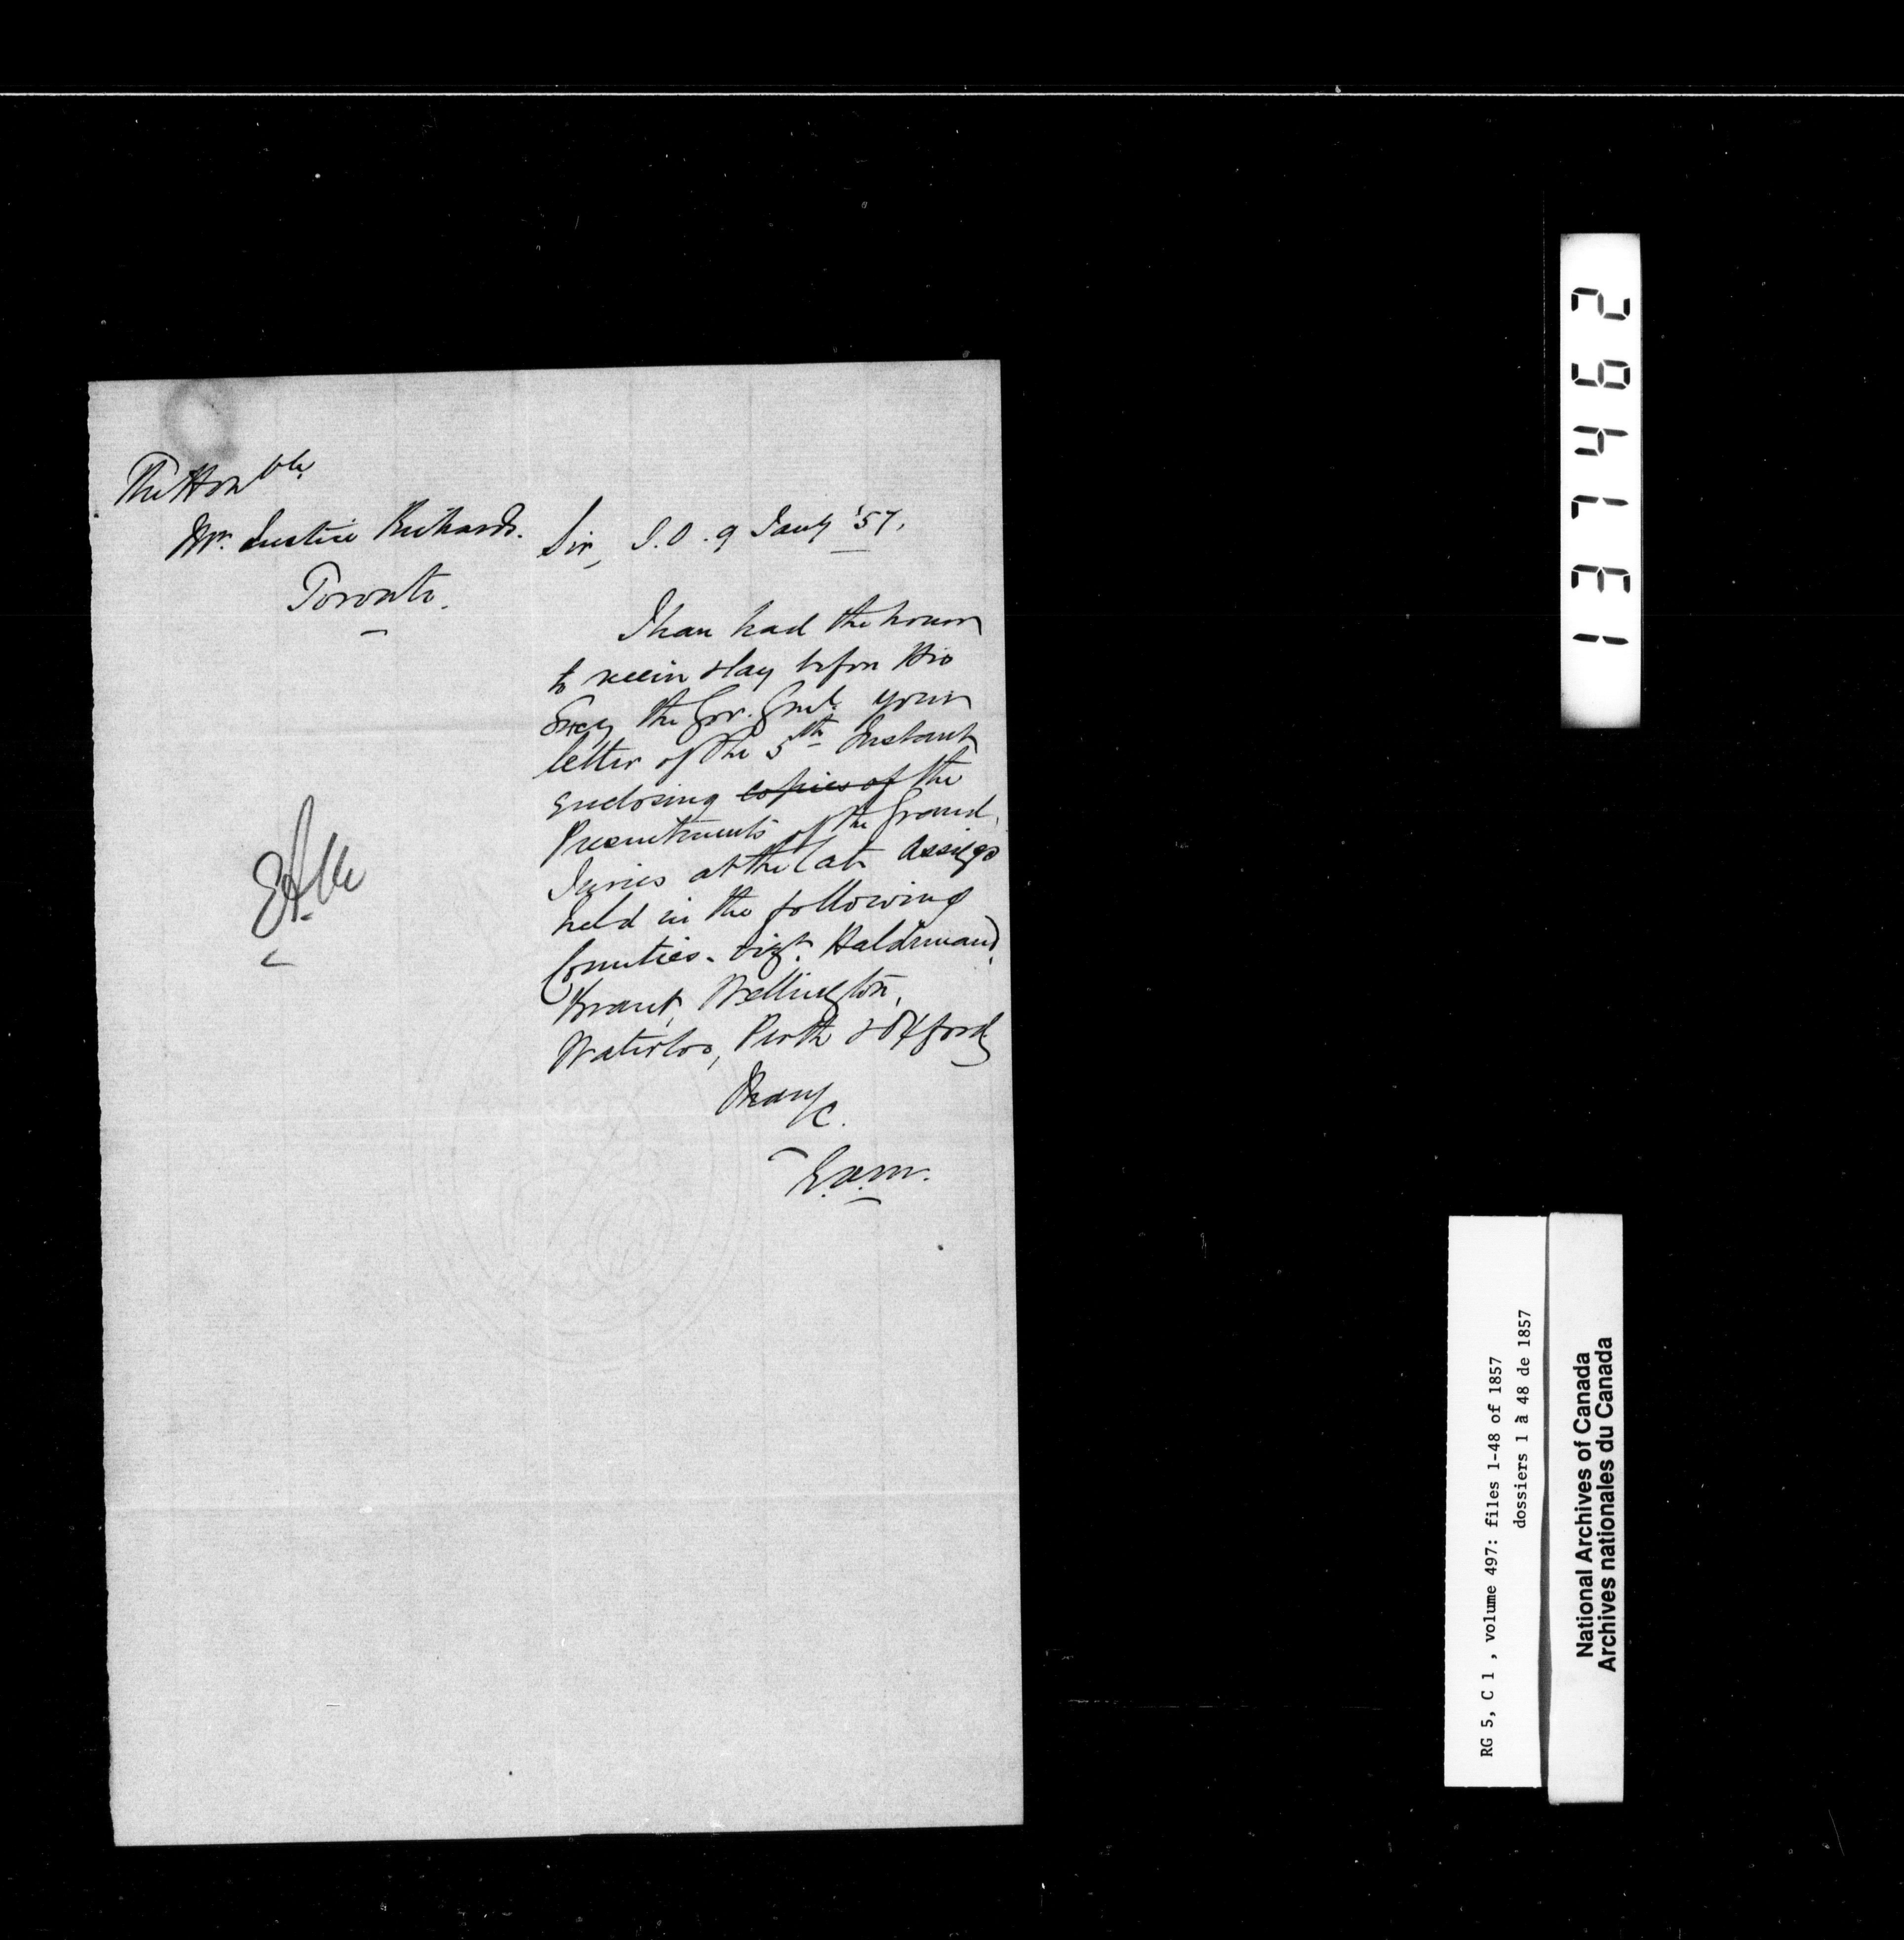 The Honble
Mr. Justice Richards.
Toronto.
Sir, S.O. 9 Jany '57.
I have had the honor
to receive & lay before His
Excy the Gov. Genl. your
letter of the 5th Instant
enclosing copies of the
Presentments of the Grand
Juries at the late Assizes
held in the following
Counties. vizt. Haldimand,
Brant, Wellington,
Waterloo, Perth & Oxford
I have &c.
E.A.M.
137462
RG 5, C 1 , volume 497: files 1-48 of 1857
dossiers 1 à 48 de 1857
National Archives of Canada
Archives nationales du Canada